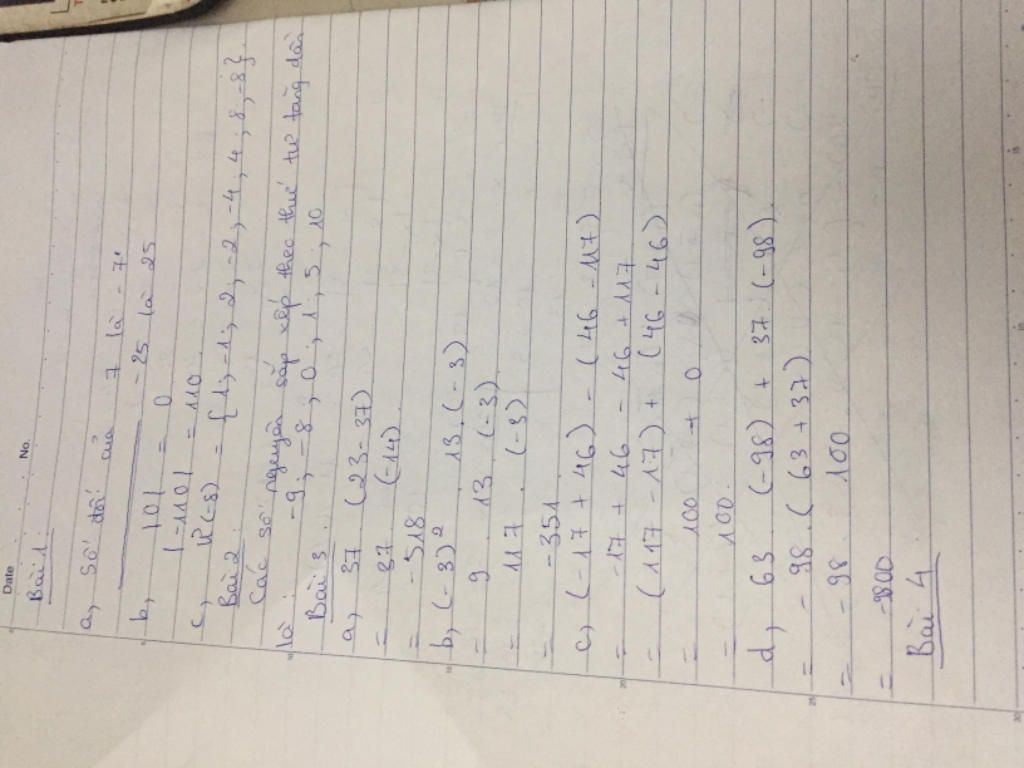 Date No.
Bài 1:
a, Số đối của 7 là -7
-25 là 25
b, |0| = 0
|-110| = 110
c, Ư(-8) = {1; -1; 2; -2; -4; 4; 8; -8}.
Bài 2:
Các số nguyên sắp xếp theo thứ tự tăng dần
là: -9; -8; 0; 1; 5; 10
Bài 3
a, 37 . (23 - 37)
= 37 . (-14)
= -518
b, (-3)² . 13 . (-3)
= 9 . 13 . (-3)
= 117 . (-3)
= -351
c, (-17 + 46) - (46 - 117)
= -17 + 46 - 46 + 117
= (117 - 17) + (46 - 46)
= 100 + 0
= 100
d, 63 . (-98) + 37 . (-98)
= -98 . (63 + 37)
= -98 . 100
= -9800
Bài 4